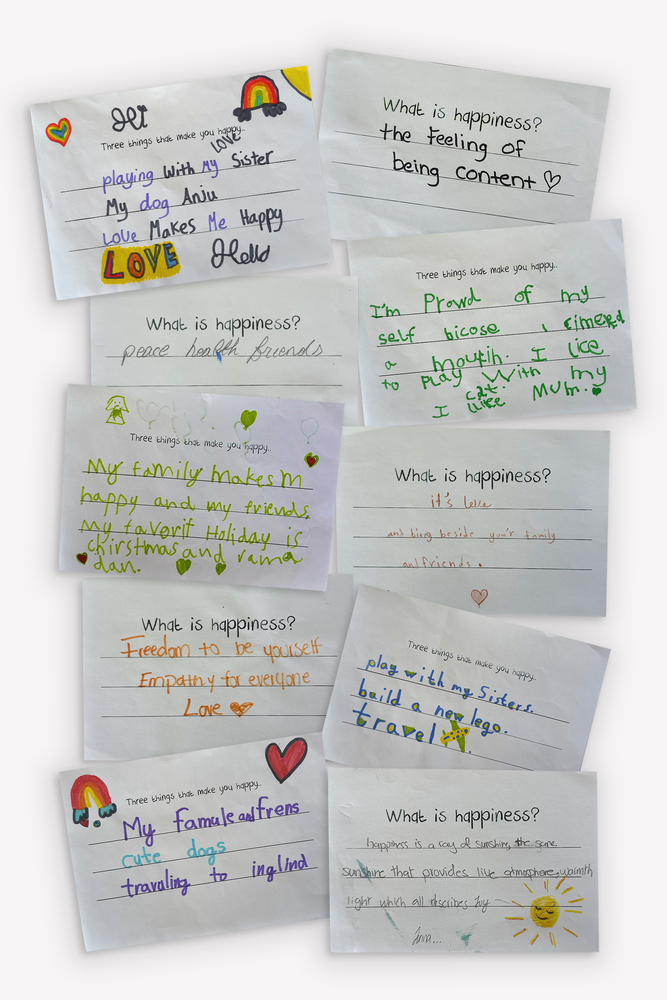 Hi
Three things that make you happy..
LOVE
playing With My Sister
My dog Anju
Love Makes Me Happy
LOVE Hello
What is happiness?
the feeling of
being content
What is happiness?
peace health friends
Three things that make you happy..
I'm Prowd of my
self bicose I
a mouth. I lice
to play With my
cat. Mum.
I like
Three things that make you happy..
My family makes m
happy and my friends.
My favorit Holiday is
chirstmas and rama
dan.
What is happiness?
it's love
and bing beside your family
and friends.
What is happiness?
Freedom to be yourself
Empathy for everyone
Love
Three things that make you happy..
play with my Sisters.
build a new lego.
travel.
Three things that make you happy..
My Famule and frens
cute dogs
travaling to inglind
What is happiness?
happiness is a ray of sunshine, the same
sunshine that provides live atmosphere, warmth
light which all describes Joy